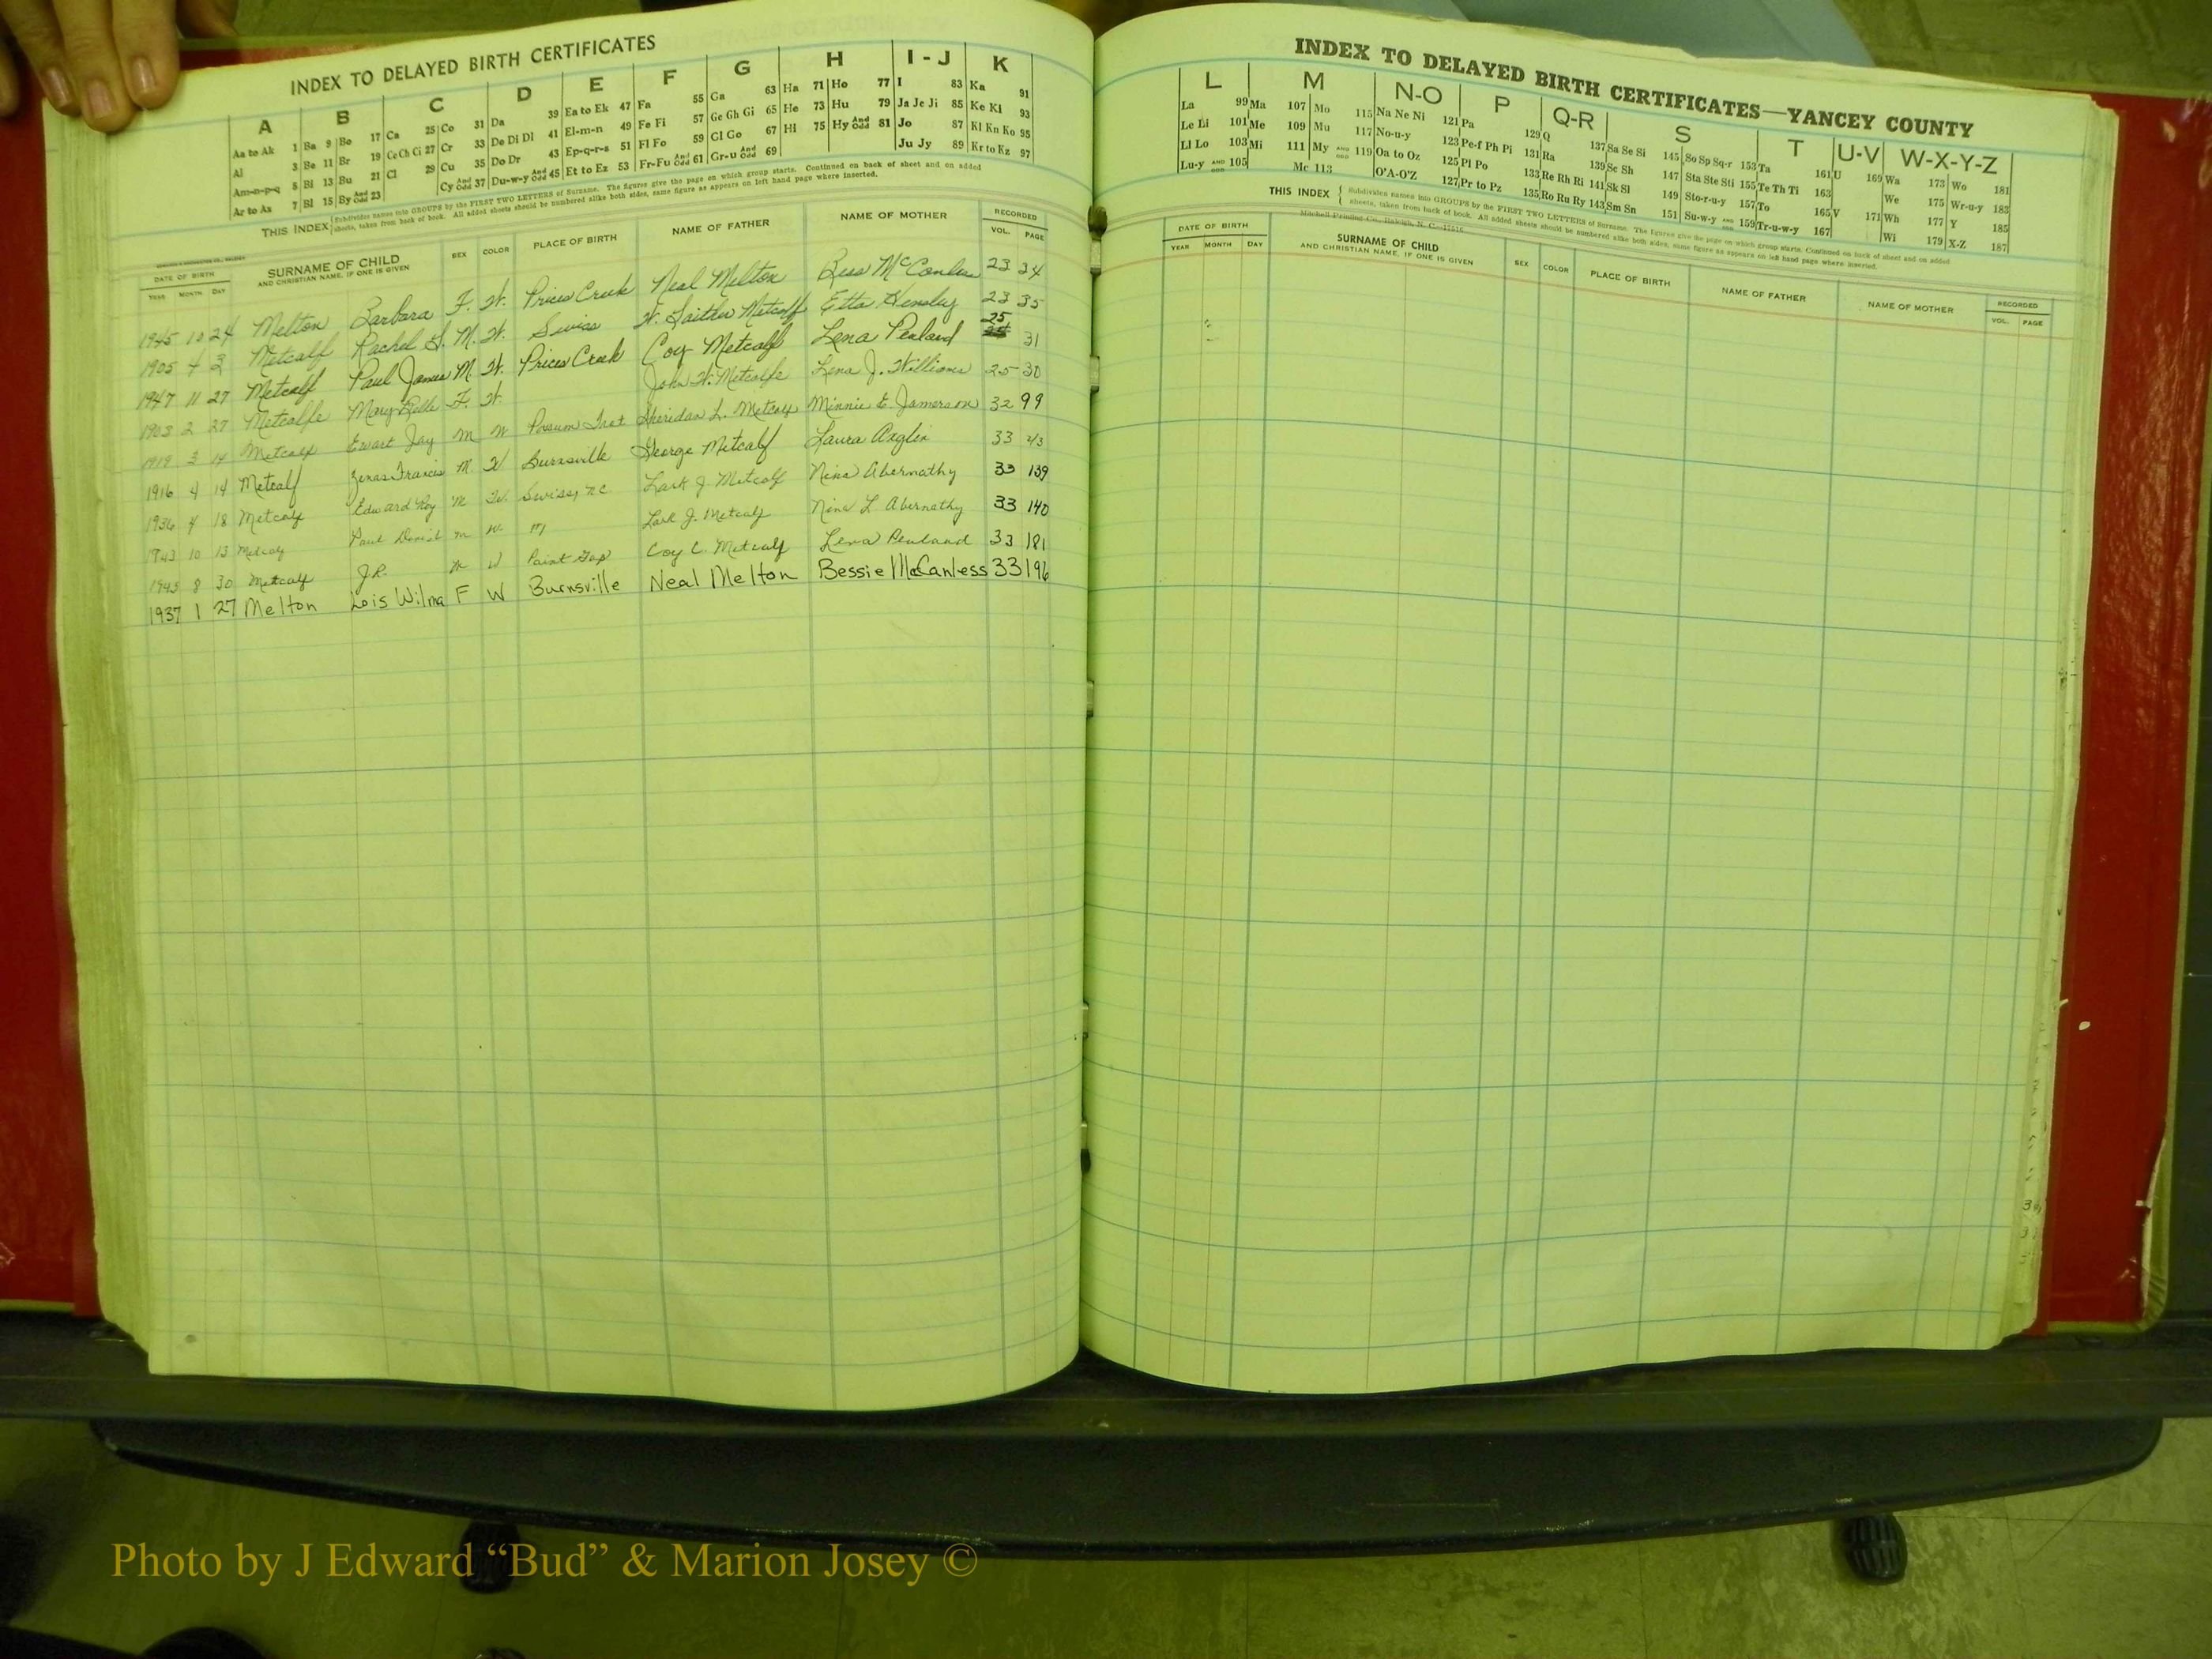 INDEX TO DELAYED BIRTH CERTIFICATES
A B C D E F G H I-J K
Aa to Ak 1 Ba 9 Bo 17 Ca 25 Co 31 Da 39 Ea to Ek 47 Fa 55 Ga 63 Ha 71 Ho 77 I 83 Ka 91
Al 3 Be 11 Br 19 Ce Ch Ci 27 Cr 33 De Di Dl 41 El-m-n 49 Fe Fi 57 Ge Gh Gi 65 He 73 Hu 79 Ja Je Ji 85 Ke Ki 93
Am-n-p-q 5 Bi 13 Bu 21 Cl 29 Cu 35 Do Dr 43 Ep-q-r-s 51 Fl Fo 59 Gl Go 67 Hi 75 Hy And Odd 81 Jo 87 Kl Kn Ko 95
Ar to Az 7 Bl 15 By And Odd 23 Cy And Odd 37 Du-w-y And Odd 45 Et to Ez 53 Fr-Fu And Odd 61 Gr-u And Odd 69 Ju Jy 89 Kr to Kz 97
THIS INDEX Subdivides names into GROUPS by the FIRST TWO LETTERS of Surname. The figures give the page on which group starts. Continued on back of sheet and on added
sheets, taken from back of book. All added sheets should be numbered alike both sides, same figure as appears on left hand page where inserted.
DATE OF BIRTH SURNAME OF CHILD SEX COLOR PLACE OF BIRTH NAME OF FATHER NAME OF MOTHER RECORDED
YEAR MONTH DAY AND CHRISTIAN NAME, IF ONE IS GIVEN VOL. PAGE
1945 10 24 Melton Barbara F. W. Prices Creek Neal Melton Bess 23 34
1905 4 3 Metcalf Rachel S. M. W. Swiss W. Gaither Metcalf Etta Hensley 23 35
1947 11 27 Metcalf Paul James M. W. Prices Creek Coy Metcalf Lena Penland 25 31
1903 2 27 Metcalfe Mary Belle F. W. John W. Metcalfe Lena J. Williams 25 30
1919 3 14 Metcalf Ewart Jay M W Possum Trot Sheridan L. Metcalf Minnie E. Jamerson 32 99
1916 4 14 Metcalf Zenas Francis M. W Burnsville George Metcalf Laura Anglin 33 43
1936 4 18 Metcalf Edward Roy M W. Swiss, N.C. Lark J. Metcalf Nina Abernathy 33 139
1943 10 13 Metcalf Paul m W. " Lark J. Metcalf Nina L Abernathy 33 140
1943 8 30 Metcalf J.R. M W Paint Gap Coy C. Metcalf Lena Penland 33 181
1937 1 27 Melton Lois Wilma F W Burnsville Neal Melton Bessie McCanless 33 196
INDEX TO DELAYED BIRTH CERTIFICATES—YANCEY COUNTY
L M N-O P Q-R S T U-V W-X-Y-Z
La 99 Ma 107 Mo 115 Na Ne Ni 121 Pa 129 Q 137 Sa Se Si 145 So Sp Sq-r 153 Ta 161 U 169 Wa 173 Wo 181
Le Li 101 Me 109 Mu 117 No-u-y 123 Pe-f Ph Pi 131 Ra 139 Sc Sh 147 Sta Ste Sti 155 Te Th Ti 163 We 175 Wr-u-y 183
Ll Lo 103 Mi 111 My AND ODD 119 Oa to Oz 125 Pl Po 133 Re Rh Ri 141 Sk Sl 149 Sto-r-u-y 157 To 165 V 171 Wh 177 Y 185
Lu-y AND ODD 105 Mc 113 O'A-O'Z 127 Pr to Pz 135 Ro Ru Ry 143 Sm Sn 151 Su-w-y AND ODD 159 Tr-u-w-y 167 Wi 179 X-Z 187
THIS INDEX Subdivides names into GROUPS by the FIRST TWO LETTERS of Surname. The figures give the page on which group starts. Continued on back of sheet and on added
sheets, taken from back of book. All added sheets should be numbered alike both sides, same figure as appears on left hand page where inserted.
Mitchell Printing Co., Raleigh, N. C.
DATE OF BIRTH SURNAME OF CHILD SEX COLOR PLACE OF BIRTH NAME OF FATHER NAME OF MOTHER RECORDED
YEAR MONTH DAY AND CHRISTIAN NAME, IF ONE IS GIVEN VOL. PAGE
Photo by J Edward “Bud” & Marion Josey ©